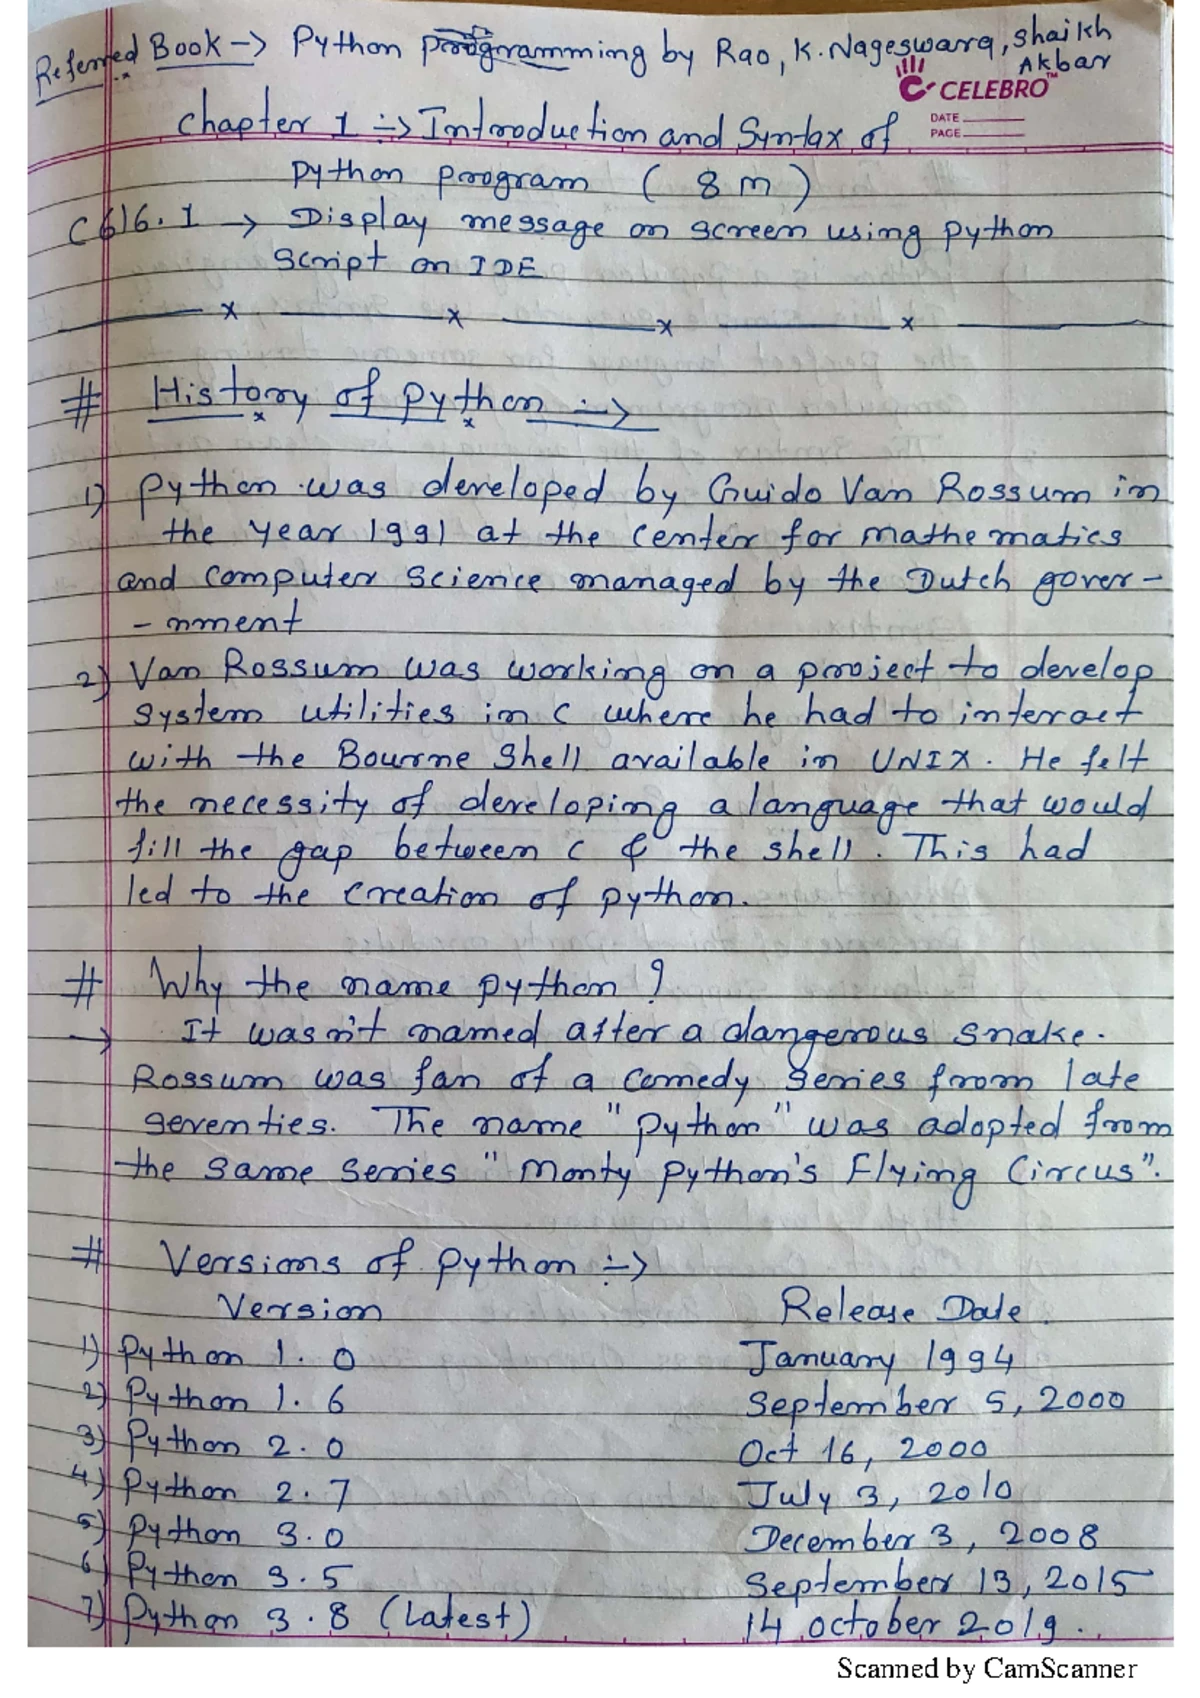 Referred Book -> Python programming by Rao, K.Nageswara, Shaikh
Akbar
CELEBRO™
DATE
PAGE
Chapter 1 :-> Introduction and Syntax of
Python program ( 8 m )
C616.1 -> Display message on screen using python
Script on IDE
x x x x
# History of python :->
1) Python was developed by Guido Van Rossum in
the year 1991 at the center for mathematics
and computer science managed by the Dutch gover-
-nment
2) Van Rossum was working on a project to develop
system utilities in C where he had to interact
with the Bourne Shell available in UNIX. He felt
the necessity of developing a language that would
fill the gap between C & the shell. This had
led to the creation of python.
# Why the name python ?
-> It wasn't named after a dangerous snake.
Rossum was fan of a comedy series from late
seventies. The name "python" was adopted from
the same series "Monty Python's Flying Circus".
# Versions of python :->
Version Release Date.
1) Python 1.0 January 1994
2) Python 1.6 September 5, 2000
3) Python 2.0 Oct 16, 2000
4) Python 2.7 July 3, 2010
5) Python 3.0 December 3, 2008
6) Python 3.5 September 13, 2015
7) Python 3.8 (Latest) 14 october 2019.
Scanned by CamScanner